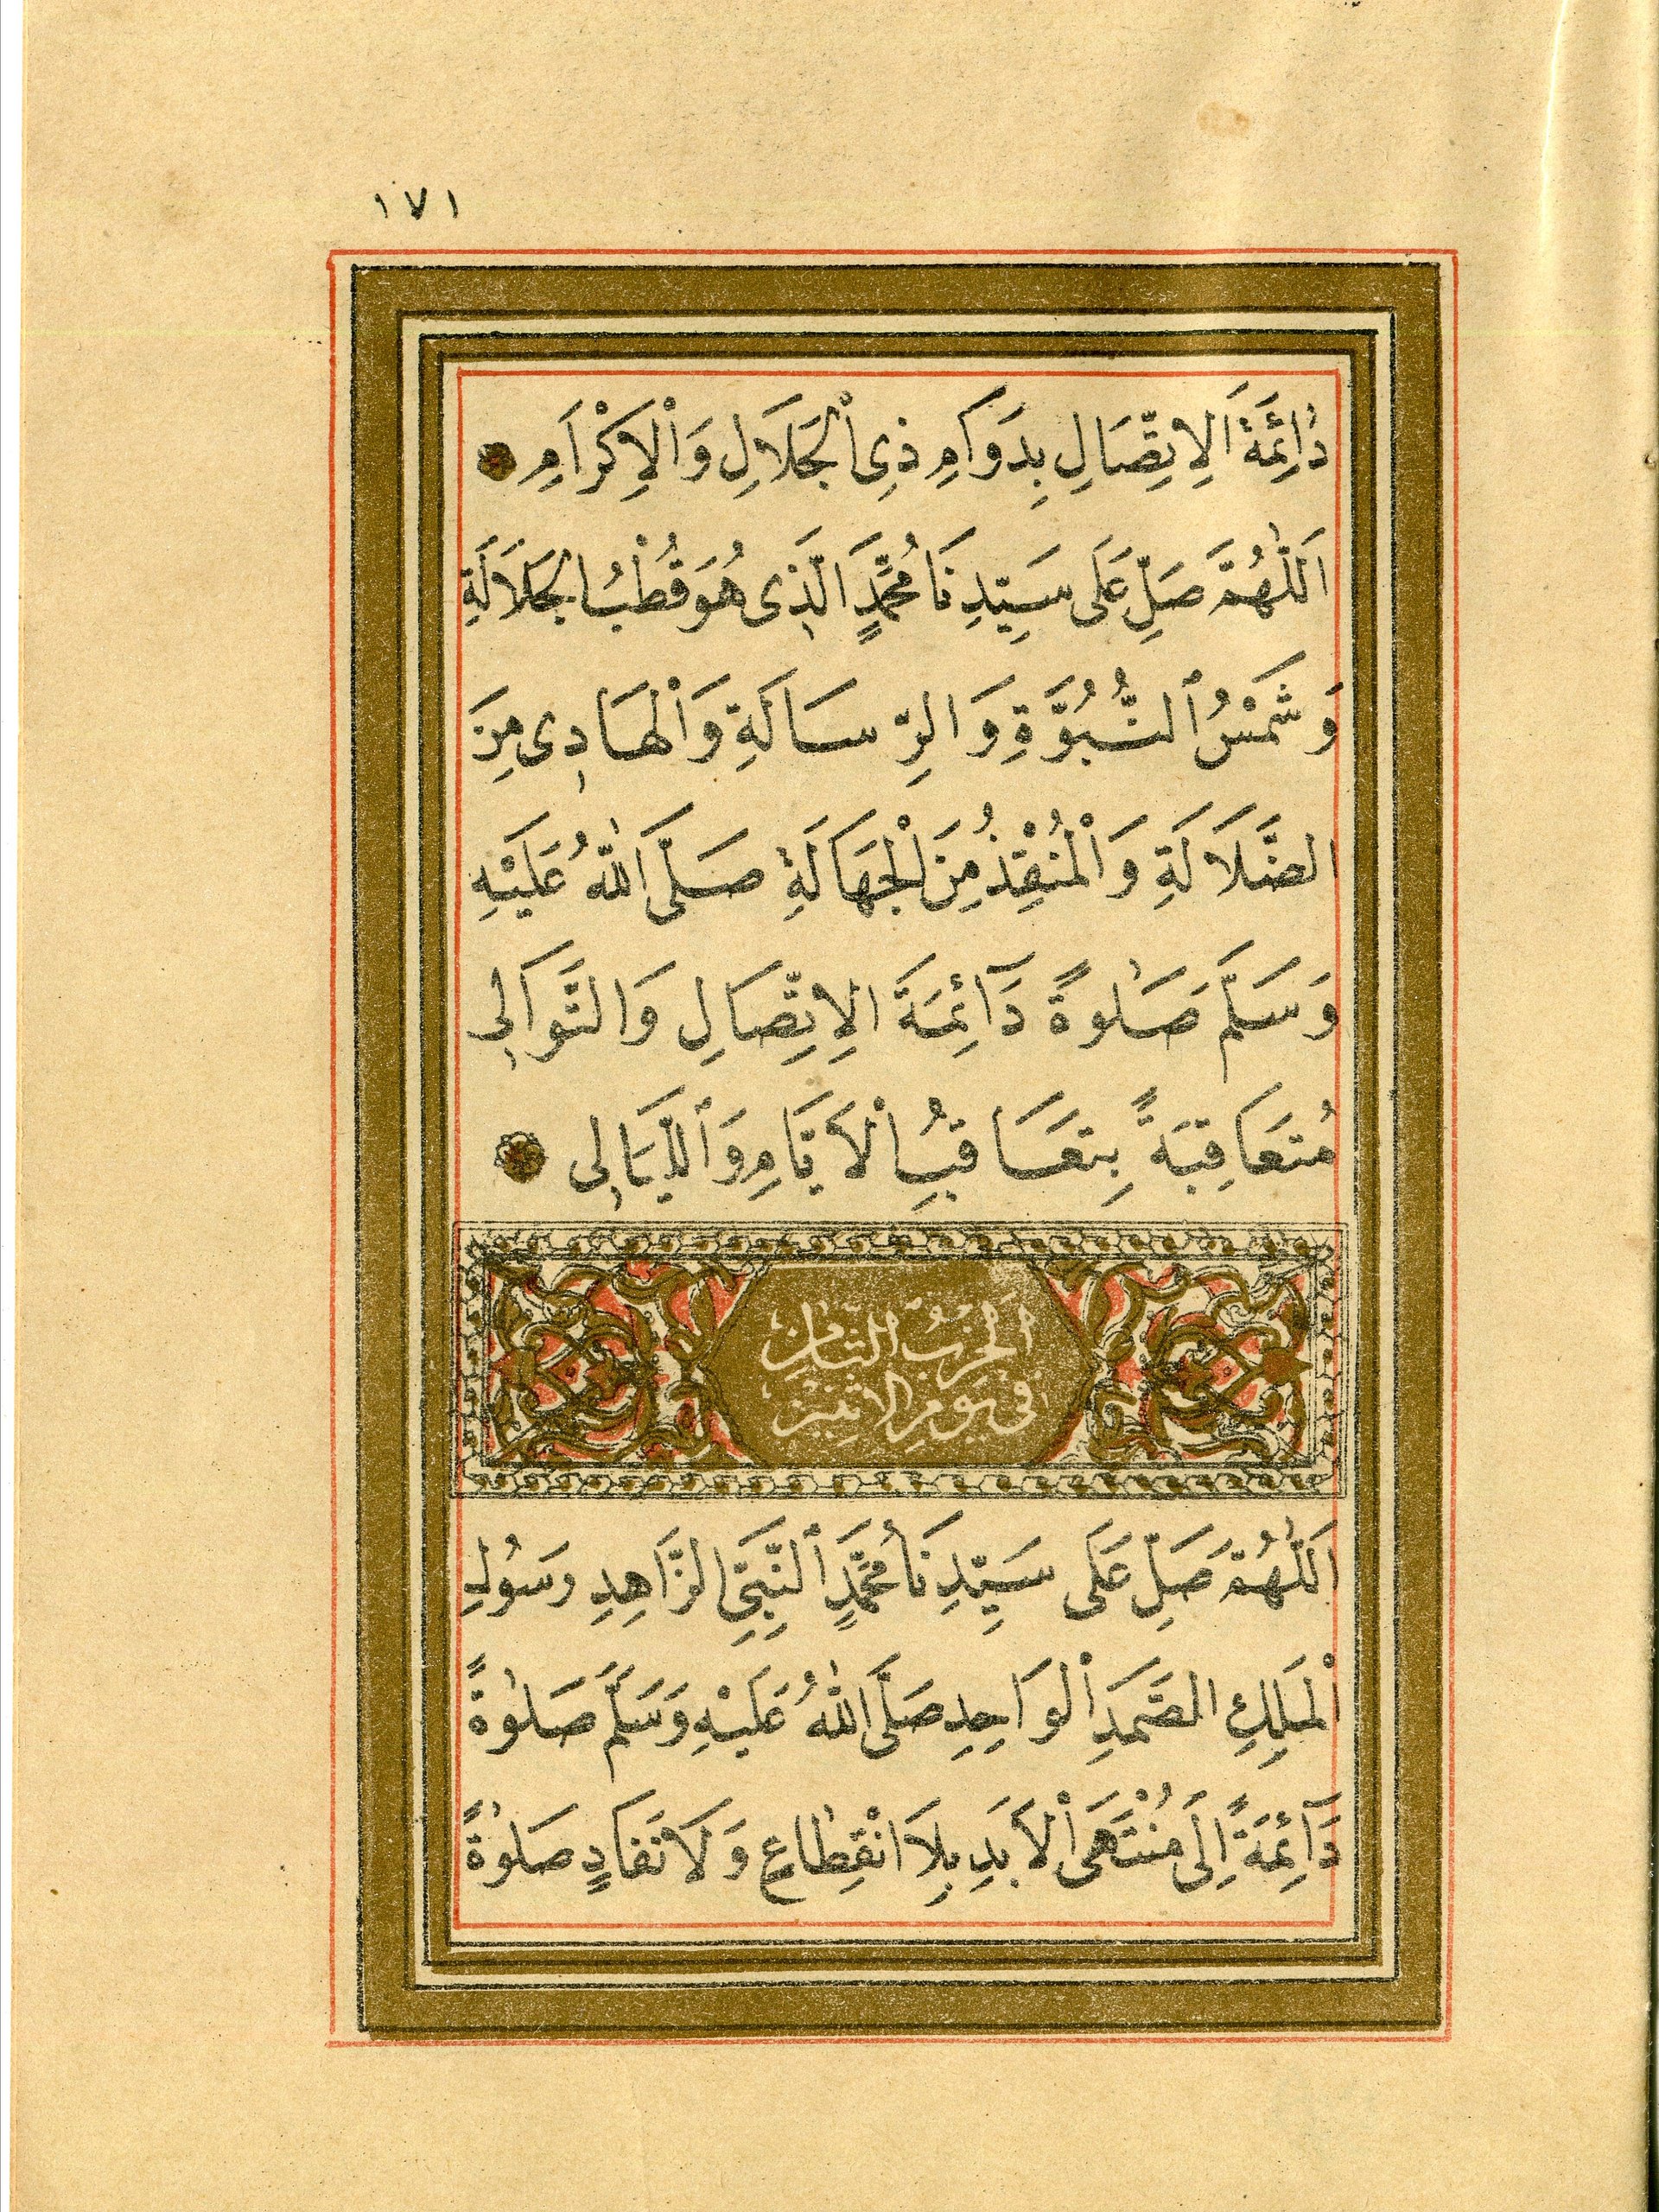 ١٧١
دَائِمَةَ الْاِتِّصَالِ بِدَوَامِ ذِى الْجَلَالِ وَالْاِكْرَامِ
اَللّٰهُمَّ صَلِّ عَلَى سَيِّدِنَا مُحَمَّدٍ الَّذِى هُوَ قُطْبُ الْجَلَالَةِ
وَشَمْسُ النُّبُوَّةِ وَالرِّسَالَةِ وَالْهَادِى مِنَ
الضَّلَالَةِ وَالْمُنْقِذُ مِنَ الْجَهَالَةِ صَلَّى اللّٰهُ عَلَيْهِ
وَسَلَّمَ صَلٰوةً دَآئِمَةَ الْاِتِّصَالِ وَالتَّوَالِى
مُتَعَاقِبَةً بِتَعَاقُبِ الْاَيَّامِ وَاللَّيَالِى
اَلْحِزْبُ الثَّامِنُ
فِى يَوْمِ الْاِثْنَيْنِ
اَللّٰهُمَّ صَلِّ عَلَى سَيِّدِنَا مُحَمَّدٍ النَّبِيِّ الزَّاهِدِ رَسُولِ
الْمَلِكِ الصَّمَدِ الْوَاحِدِ صَلَّى اللّٰهُ عَلَيْهِ وَسَلَّمَ صَلٰوةً
دَآئِمَةً اِلَى مُنْتَهَى الْاَبَدِ بِلَا انْقِطَاعٍ وَلَا نَفَادٍ صَلٰوةً